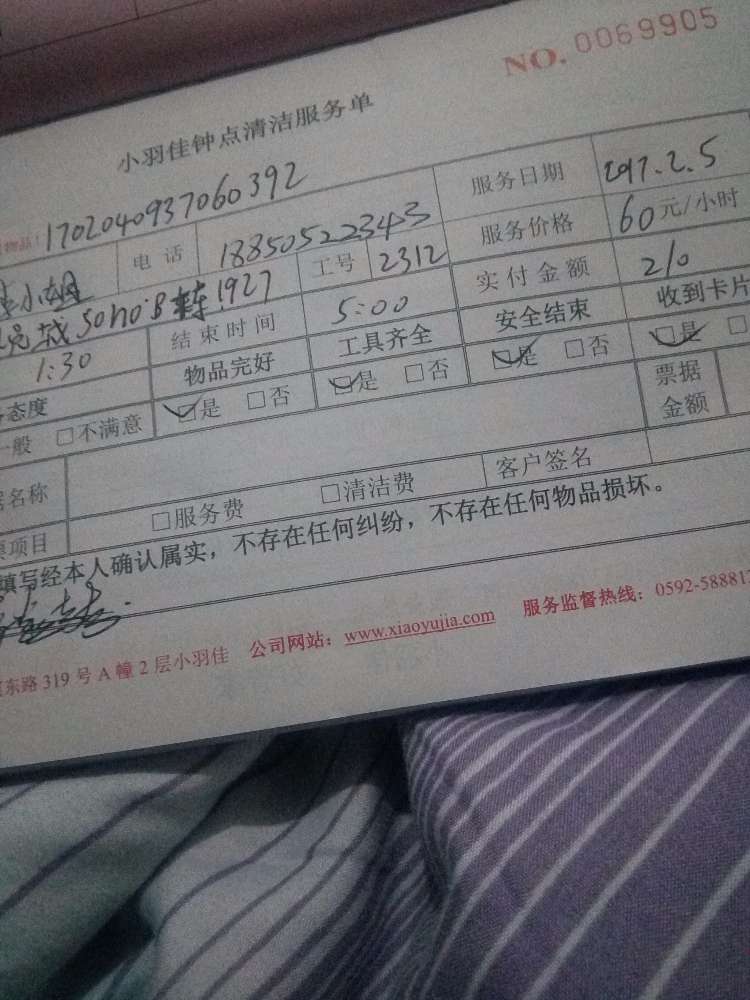 NO. 0069905
小羽佳钟点清洁服务单
物品! 1702040937060392 服务日期 2017.2.5
小姐 电话 18850522343 服务价格 60元/小时
城soHo·B栋1927 工号 2312 实付金额 210
1:30 结束时间 5:00 安全结束 收到卡片
态度 物品完好 工具齐全 是 □否 是
一般 □不满意 是 □否 是 □否 票据金额
名称
项目 □服务费 □清洁费 客户签名
填写经本人确认属实，不存在任何纠纷，不存在任何物品损坏。
东路319号A幢2层小羽佳 公司网站：www.xiaoyujia.com 服务监督热线：0592-588812